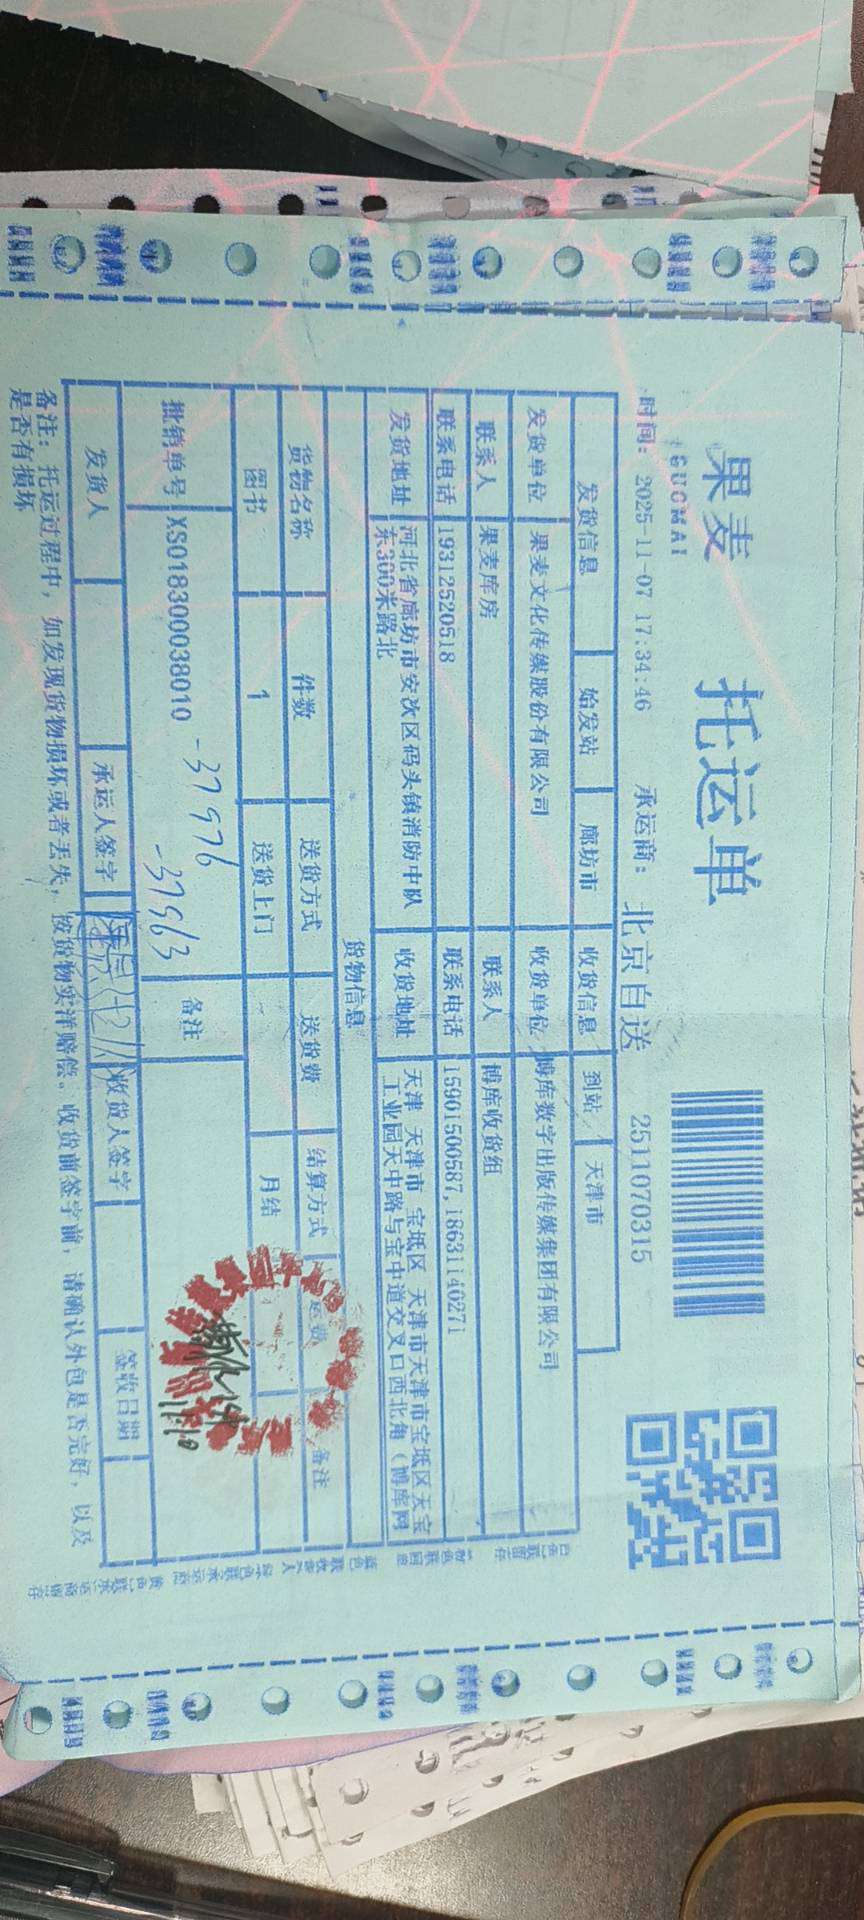 果麦
GUOMAI
托运单
时间: 2025-11-07 17:34:46 承运商: 北京自送 2511070315
发货信息 始发站 廊坊市 收货信息 到站 天津市
发货单位 果麦文化传媒股份有限公司 收货单位 博库数字出版传媒集团有限公司
联系人 果麦库房 联系人 博库收货组
联系电话 19312520518 联系电话 15901500587,18631140271
发货地址 河北省廊坊市安次区码头镇消防中队
东300米路北
收货地址 天津 天津市 宝坻区 天津市天津市宝坻区天宝
工业园天中路与宝中道交叉口西北角（博库网
货物信息
货物名称 件数 送货方式 送货费 结算方式 运费 备注
图书 1 送货上门 月结
批销单号 XS018300038010 备注
-37976
-37963
发货人 承运人签字 收货人签字 签收日期
备注: 托运过程中, 如发现货物损坏或者丢失, 按货物实洋赔偿。收货前签字前, 请确认外包是否完好, 以及
是否有损坏